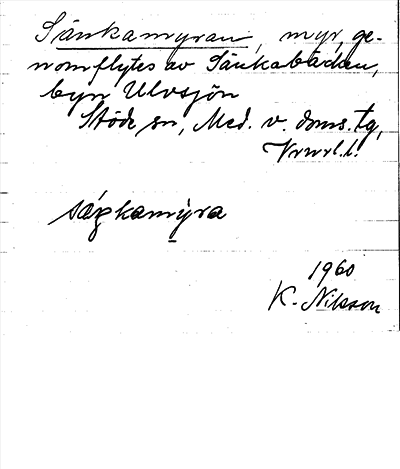 Sänkamyran, myr, ge-
nomflytes av Sänkabäcken,
byn Ulvsjön
Stöde sn, Med. v. doms. tg,
sæŋkamỳra
1960
K. Nilsson